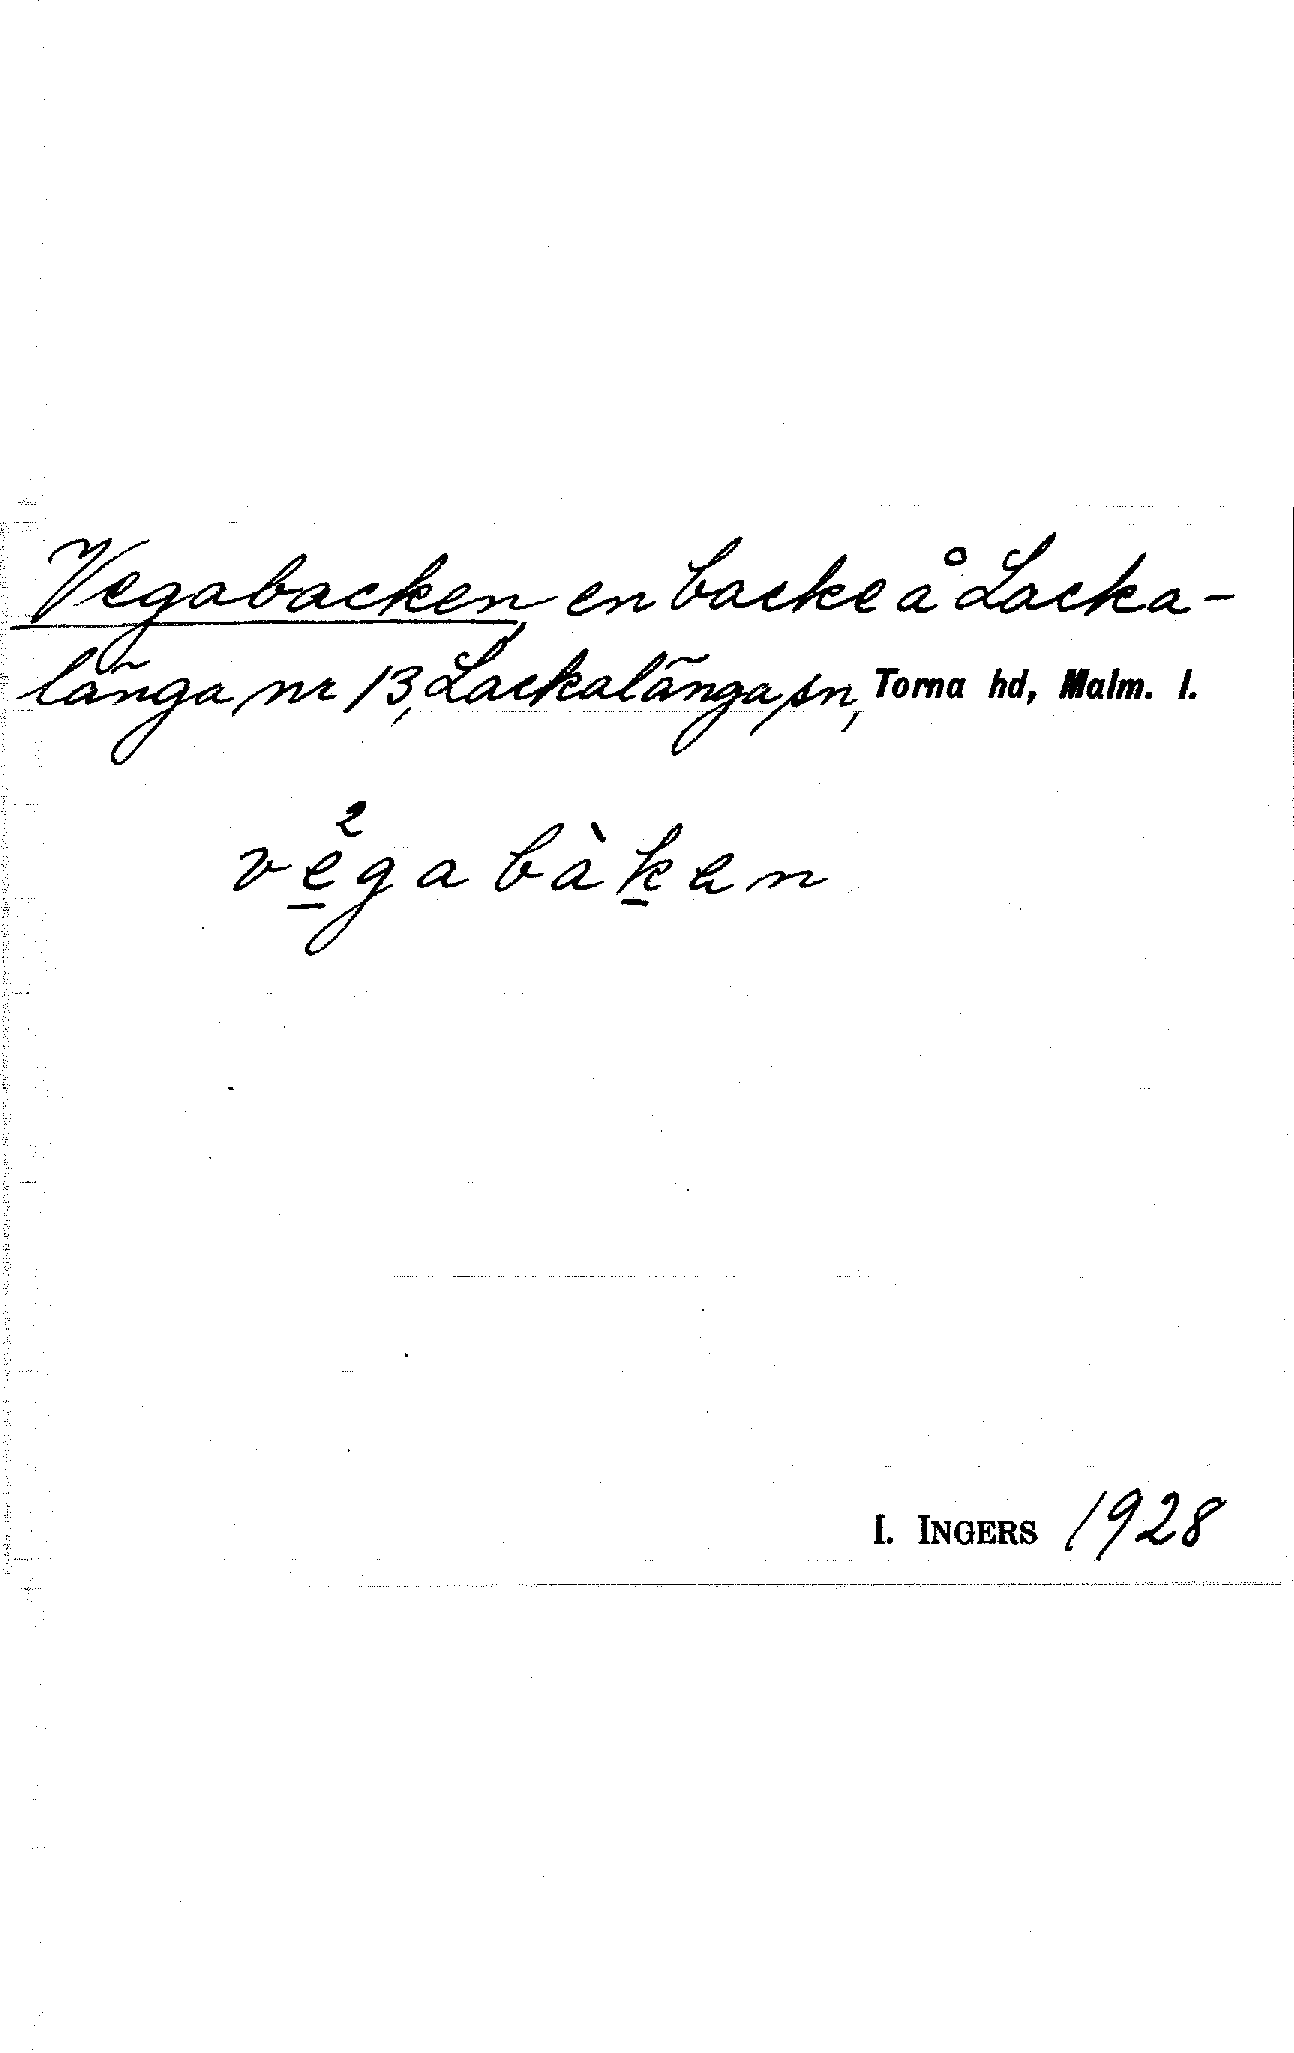 Vegabacken, en backe å Lacka-
länga nr 13, Lackalänga sn, Torna hd, Malm. l.
ve̲²gabàk̲en
I. INGERS 1928